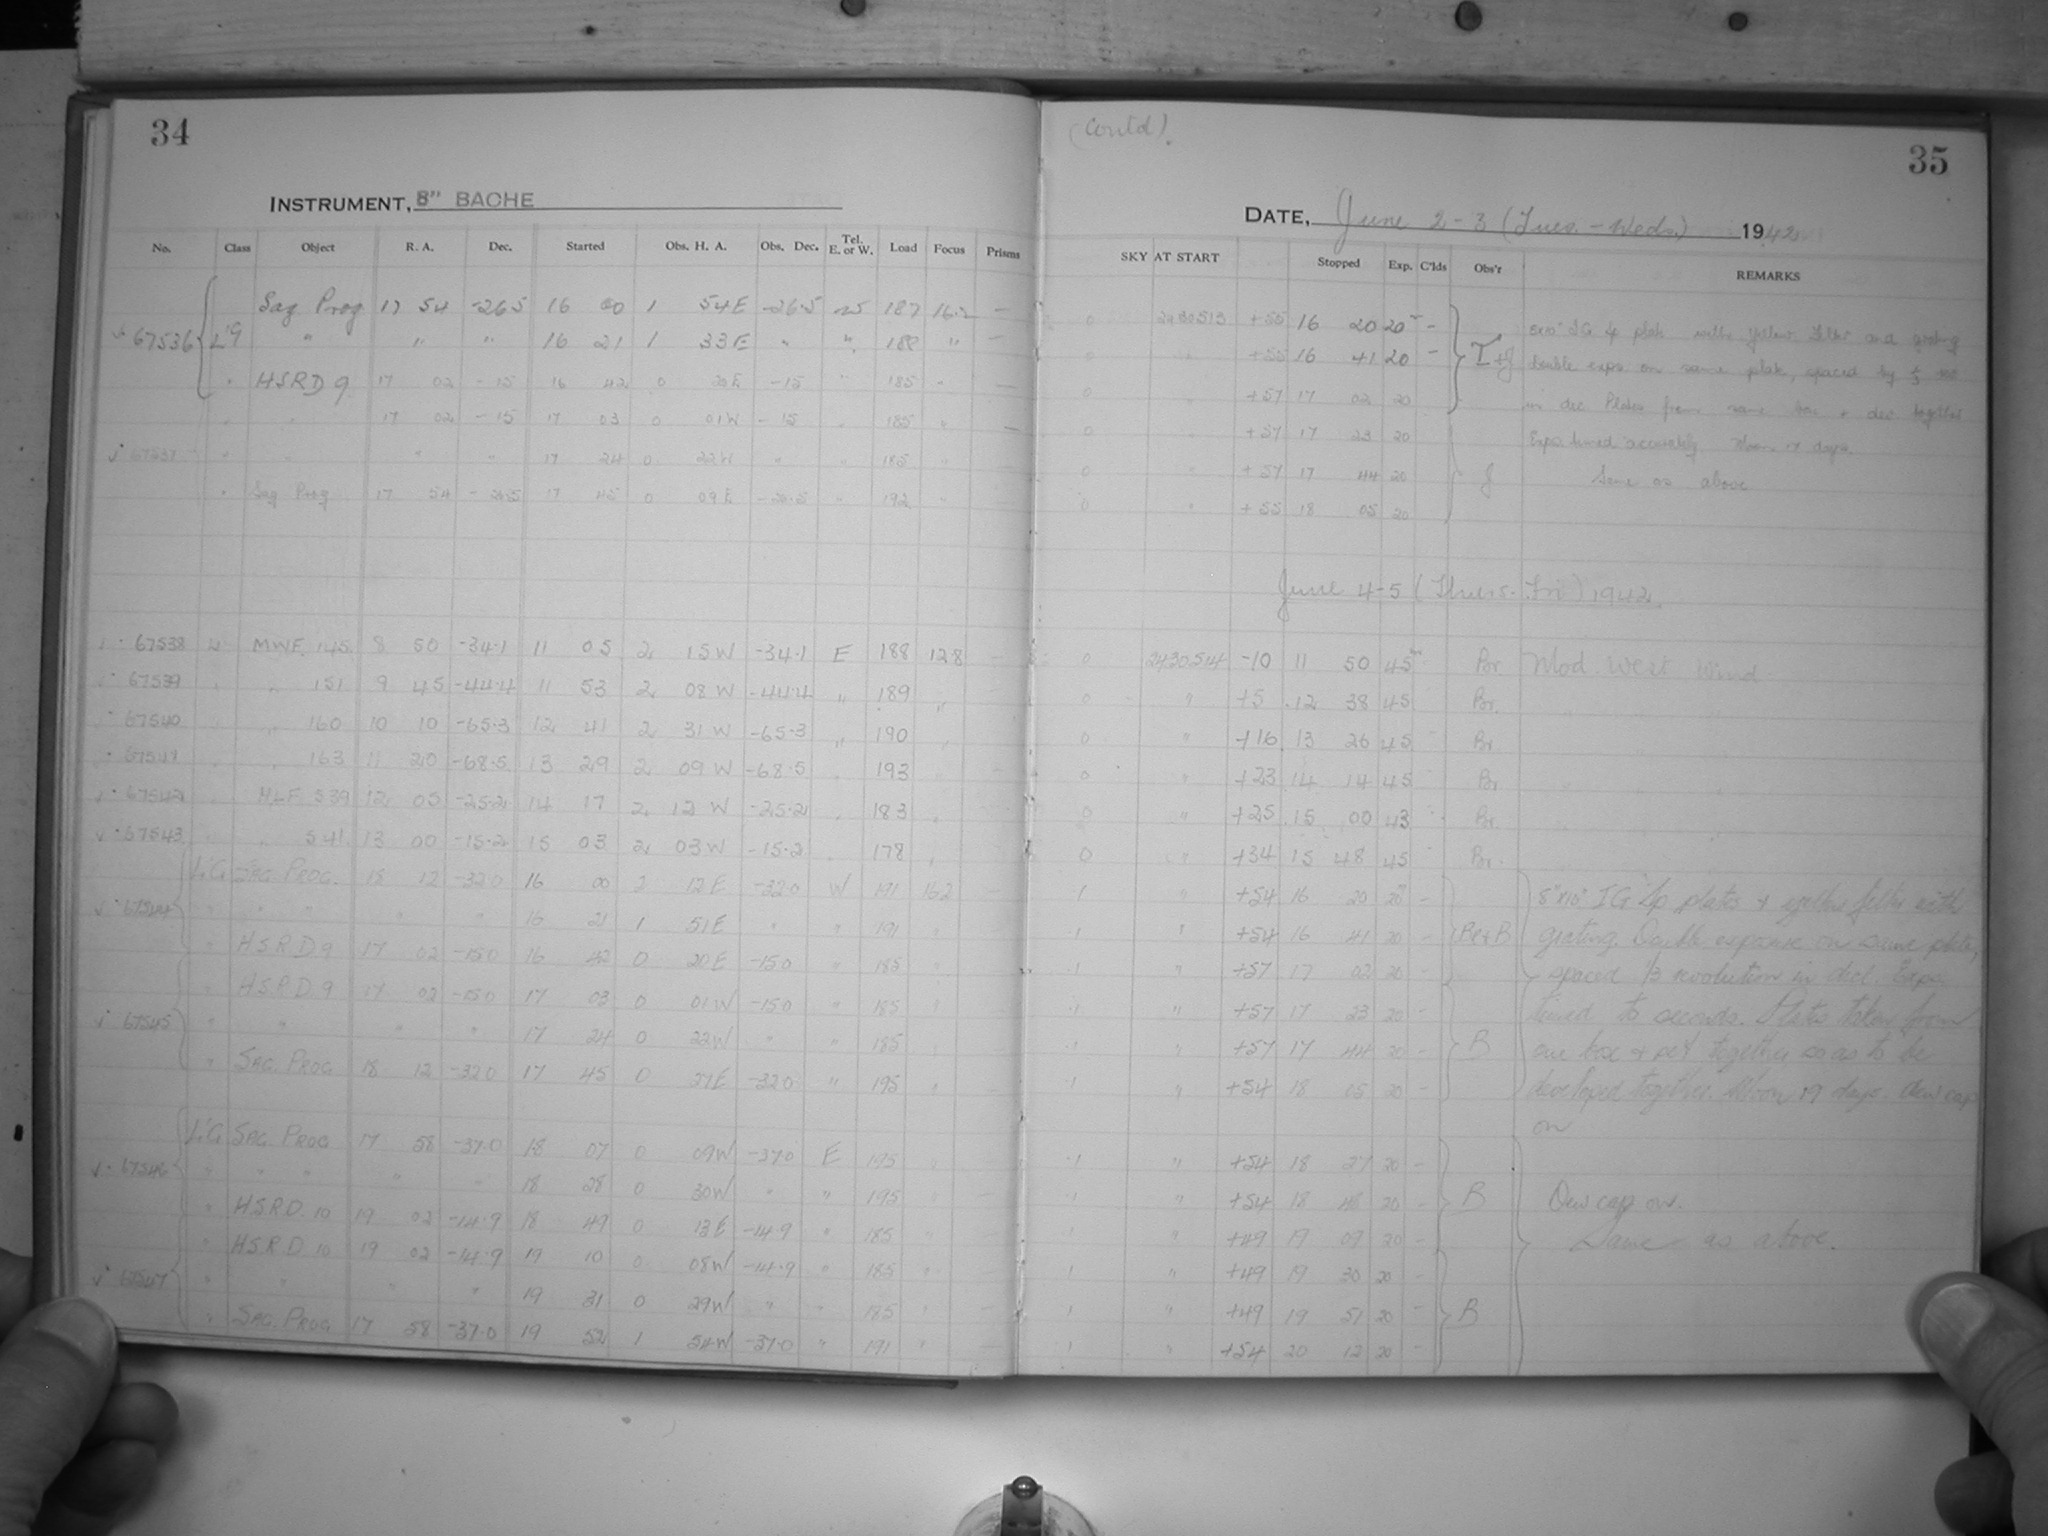 34
INSTRUMENT, 8" BACHE
No. Class Object R. A. Dec. Started Obs. H. A. Obs. Dec. Tel. E. or W. Load Focus Prisms
Sag Prog 17 54 -26.5 16 00 1 54E -26.5 W 187 16.2 —
67536 L'G " " " 16 21 1 33E " " 188 " —
" HSRD 9 17 02 -15 16 42 0 20E -15 " 185 " —
" " 17 02 -15 17 03 0 01W -15 " 185 " —
67537 " " " " 17 24 0 22W " " 185 "
" Sag Prog 17 54 -26.5 17 45 0 09E -26.5 " 192 "
67538 L MWF 145 8 50 -34.1 11 05 2 15W -34.1 E 188 12.8 —
67539 " " 151 9 45 -44.4 11 53 2 08W -44.4 " 189 "
67540 " " 160 10 10 -65.3 12 41 2 31W -65.3 " 190 "
67541 " " 163 11 20 -68.5 13 29 2 09W -68.5 " 193 "
67542 " MLF 539 12 05 -25.2 14 17 2 12W -25.2 " 183 "
67543 " " 541 13 00 -15.2 15 03 2 03W -15.2 " 178 "
L'G SAG. PROG. 18 12 -32.0 16 00 2 12E -32.0 W 191 16.2 —
67544 " " " " " 16 21 1 51E " " 191 "
" H.S.R.D 9 17 02 -15.0 16 42 0 20E -15.0 " 185 "
" H.S.R.D 9 17 02 -15.0 17 03 0 01W -15.0 " 185 "
67545 " " " " 17 24 0 22W " " 185 "
" SAG. PROG 18 12 -32.0 17 45 0 27E -32.0 " 195 "
L'G SAG. PROG 17 58 -37.0 18 07 0 09W -37.0 E 195 "
67546 " " " " " 18 28 0 30W " " 195 "
" H.S.R.D. 10 19 02 -14.9 18 49 0 13E -14.9 " 185 "
" H.S.R.D 10 19 02 -14.9 19 10 0 08W -14.9 " 185 "
67547 " " " " 19 31 0 29W " " 185 "
" SAG. PROG 17 58 -37.0 19 52 1 54W -37.0 " 191 "
(Contd).
35
DATE, June 2-3 (Tues. - Weds.) 1942
SKY AT START Stopped Exp. C'lds Obs'r REMARKS
0 2430513 +55 16 20 20m — 8x10" IG 4p plate with yellow filter and grating
0 " +55 16 41 20 — T+J Double expo on same plate, spaced by
0 " +57 17 02 20 in dec. Plates from same box + dev together
0 " +57 17 23 20 Expo timed accurately. Moon 17 days.
0 " +57 17 44 20 J Same as above
0 " +55 18 05 20
June 4-5 (Thurs. Fri) 1942.
0 2430514 -10 11 50 45m Br Mod. West Wind.
0 " +5 12 38 45 Br. "
0 " +16 13 26 45 Br "
0 " +23 14 14 45 Br
0 " +25 15 00 43 Br.
0 " +34 15 48 45 Br.
1 " +54 16 20 20m — 8"x10" IG 4p plates + yellow filter with
1 " +54 16 41 20 — Br+B grating. Double exposure on same plate,
1 " +57 17 02 20 — spaced 1/3 revolution in decl. Expo
1 " +57 17 23 20 — timed to seconds. Plates taken from
1 " +57 17 44 20 — B one box + set together so as to be
1 " +54 18 05 20 — developed together. Moon 19 days. Dew cap
on
1 " +54 18 27 20 —
1 " +54 18 48 20 — B Dew cap on.
1 " +49 19 09 20 — Same as above.
1 " +49 19 30 20 —
1 " +49 19 51 20 — B
1 " +54 20 12 20 —